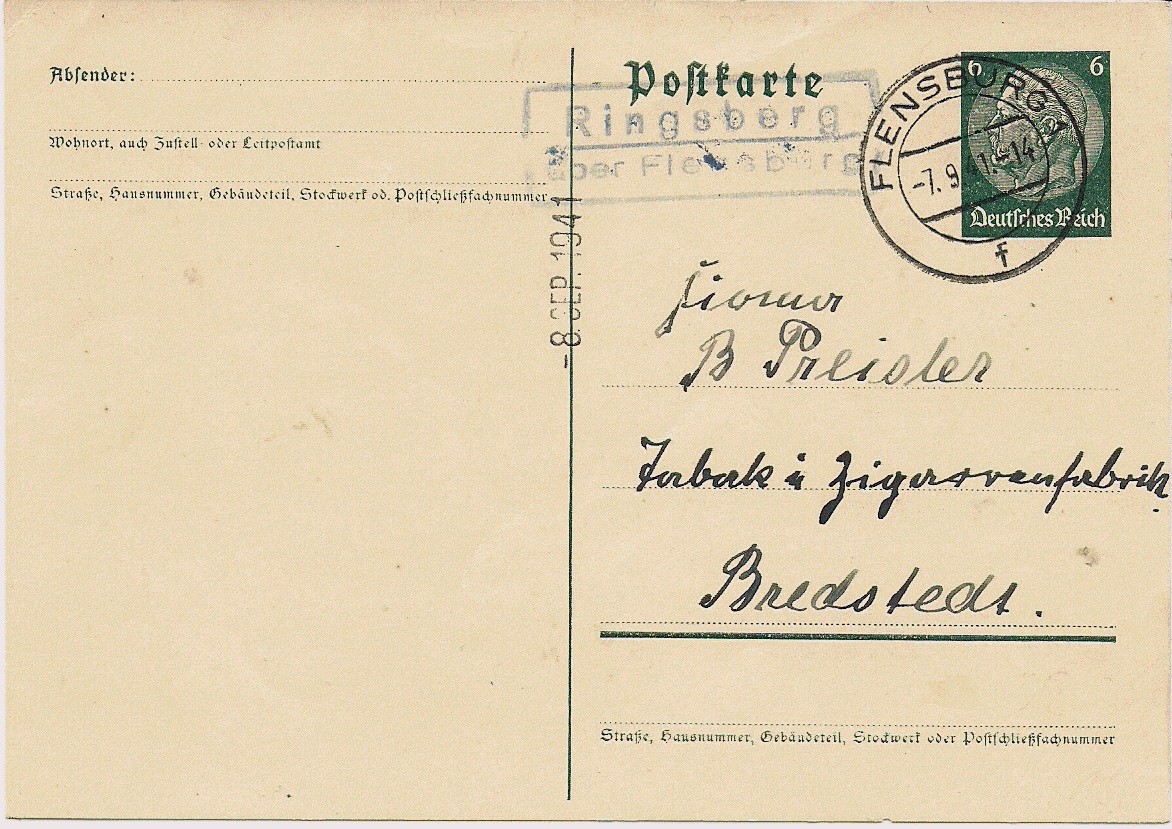 Absender:
Wohnort, auch Zustell- oder Leitpostamt
Straße, Hausnummer, Gebäudeteil, Stockwerk od. Postschließfachnummer
Postkarte
Ringsberg
über Flensburg
FLENSBURG 1
-7.9.41.-14
f
6 6
Deutsches Reich
-8.SEP.1941
B Preisler
Tabak u Zigarrenfabrik
Bredstedt.
Straße, Hausnummer, Gebäudeteil, Stockwerk oder Postschließfachnummer